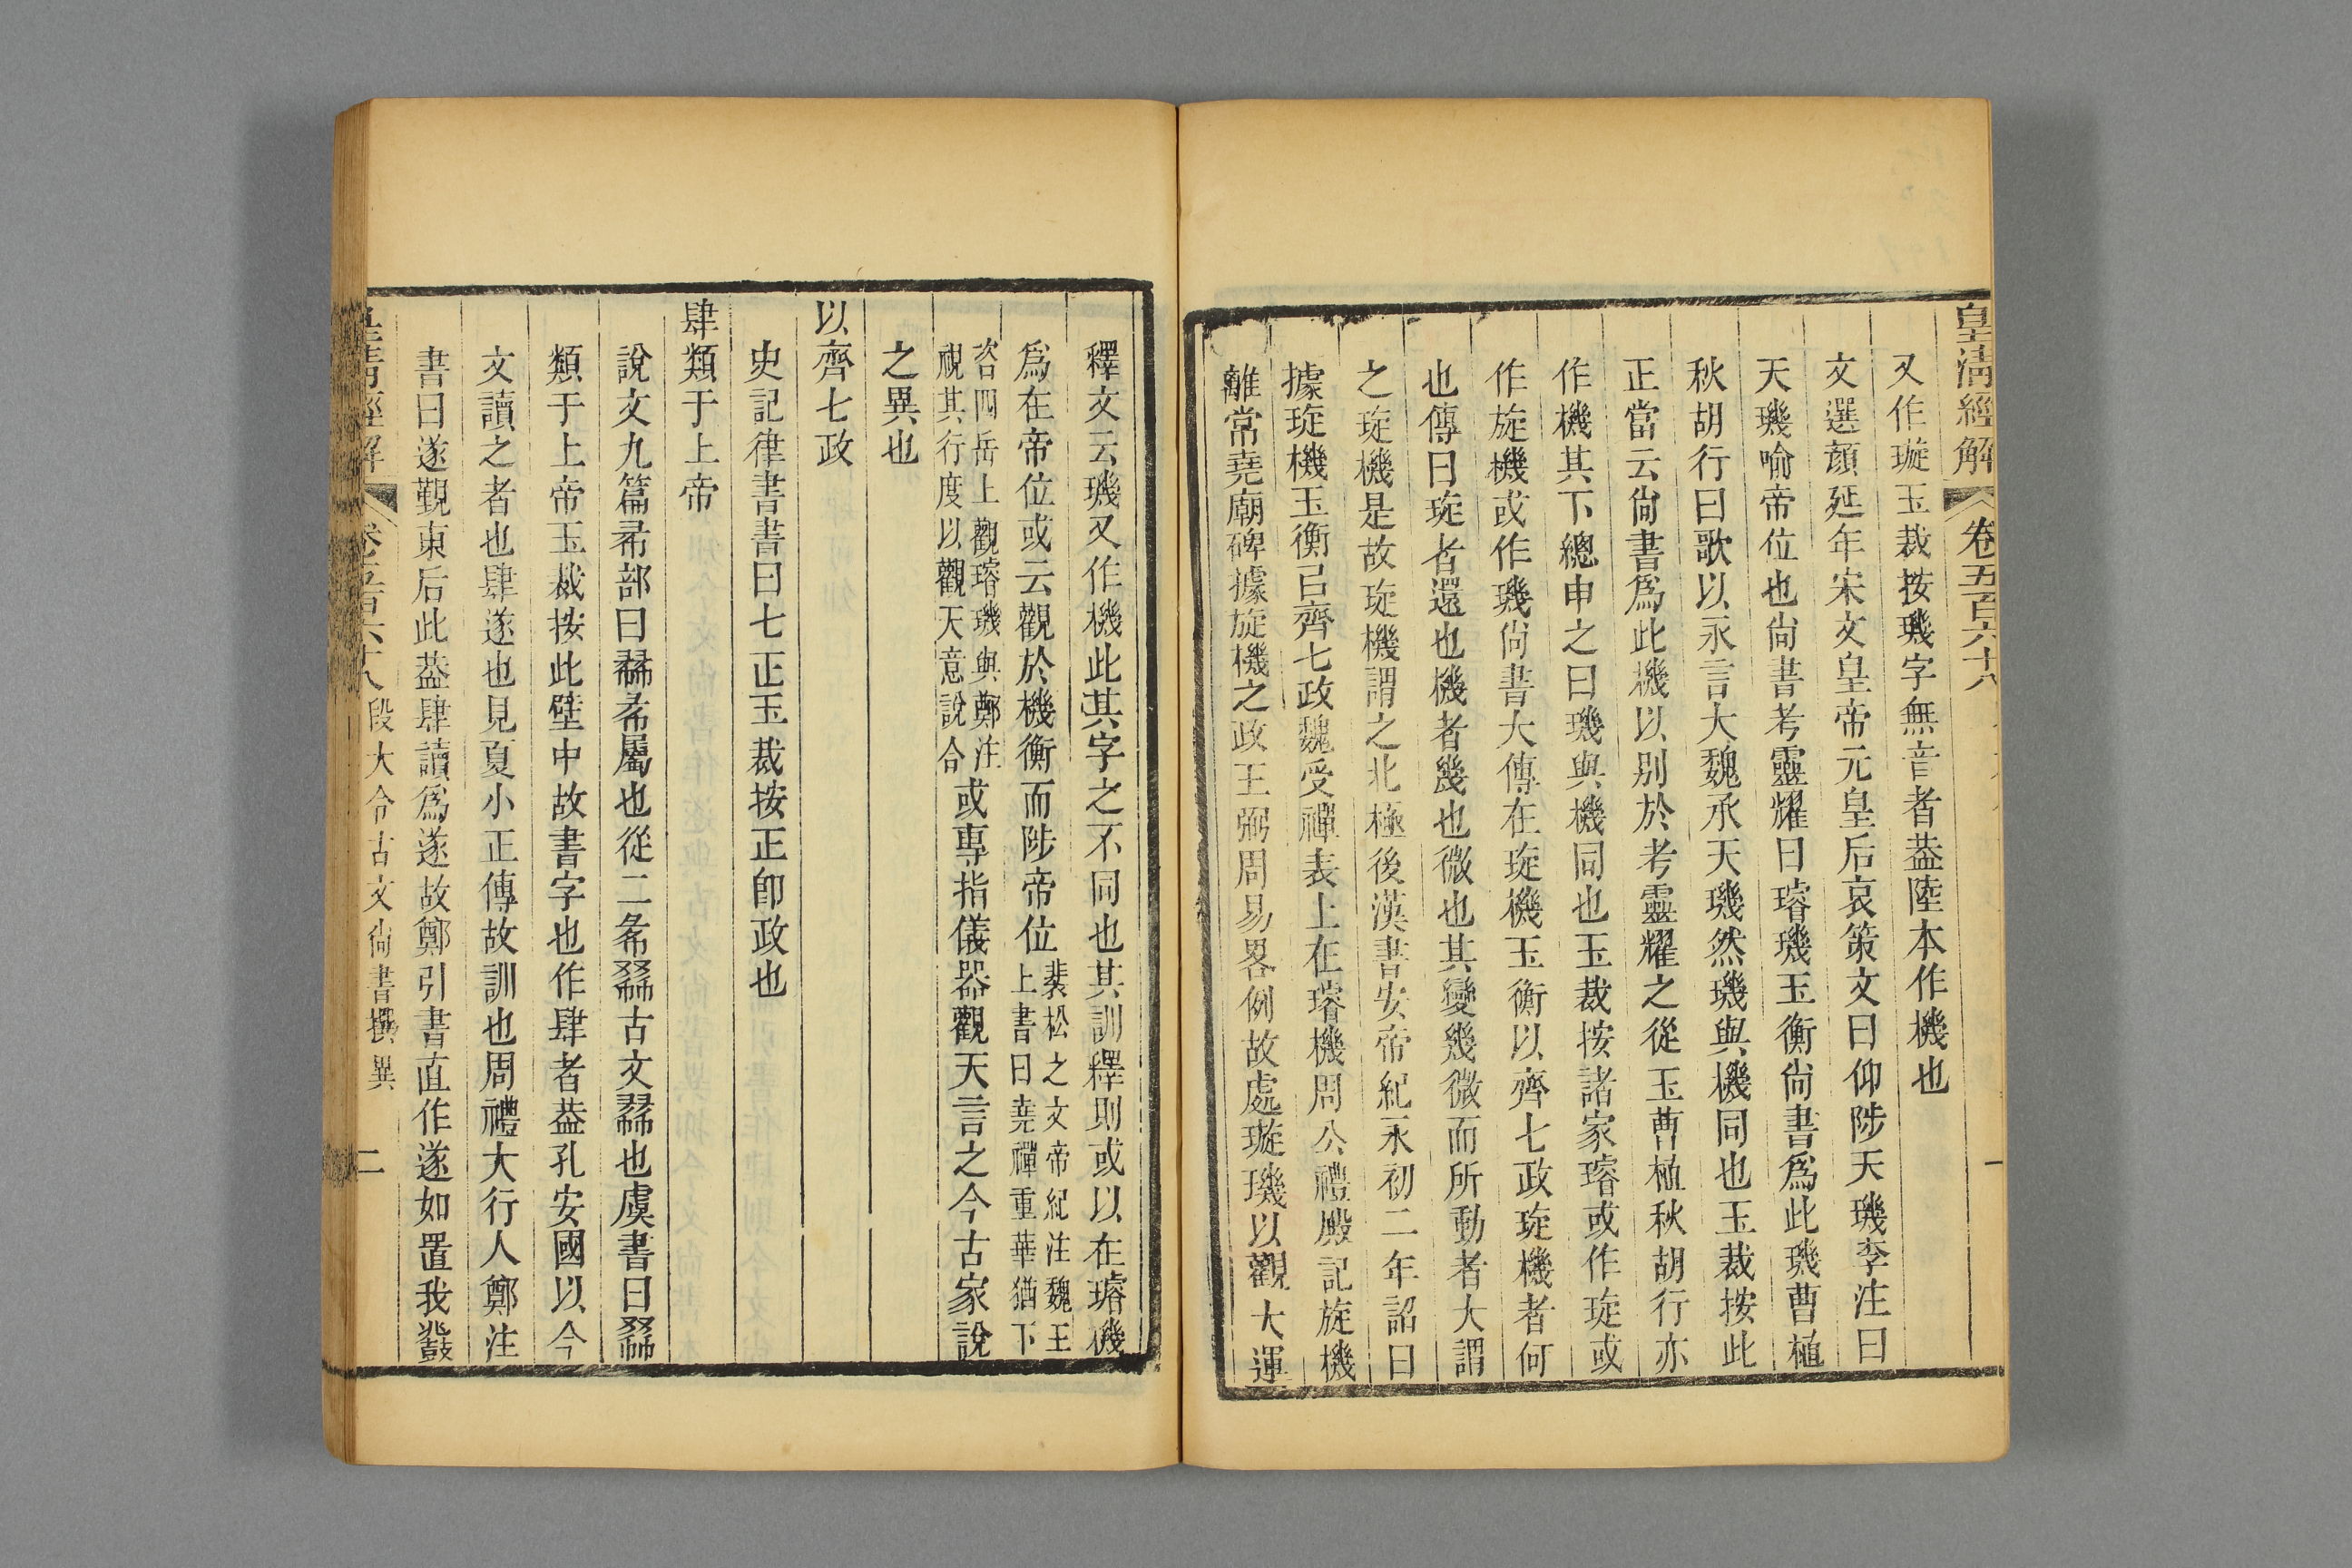 皇清經解 卷五百六十八 一
又作璇玉裁按璣字無音者葢陸本作機也
文選顏延年宋文皇帝元皇后哀策文曰仰陟天璣李注曰
天璣喻帝位也尙書考靈耀曰璿璣玉衡尙書爲此璣曹植
秋胡行曰歌以永言大魏承天璣然璣與機同也玉裁按此
正當云尙書爲此機以别於考靈耀之從玉曹植秋胡行亦
作機其下總申之曰璣與機同也玉裁按諸家璿或作琁或
作旋機或作璣尙書大傳在琁機玉衡以齊七政琁機者何
也傳曰琁者還也機者幾也微也其變幾微而所動者大謂
之琁機是故琁機謂之北極後漢書安帝紀永初二年詔曰
據琁機玉衡㠯齊七政魏受禪表上在璿機周公禮殿記旋機
離常堯廟碑據旋機之政王弼周易畧例故處璇璣以觀大運
釋文云璣又作機此其字之不同也其訓釋則或以在璿機
爲在帝位或云觀於機衡而陟帝位裴松之文帝紀注魏王上書曰堯禪重華猶下
咨四岳上觀璿璣與鄭注視其行度以觀天意說合或專指儀器觀天言之今古家說
之異也
以齊七政
史記律書書曰七正玉裁按正卽政也
肆類于上帝
說文九篇㣇部曰𦘒㣇屬也從二㣇𧰲古文𦘒也虞書曰𧰲
類于上帝玉裁按此壁中故書字也作肆者葢孔安國以今
文讀之者也肆遂也見夏小正傳故訓也周禮大行人鄭注
書曰遂覲東后此葢肆讀爲遂故鄭引書直作遂如畱我鼗
皇清經解 卷五百六十八 段大令古文尙書撰異 二